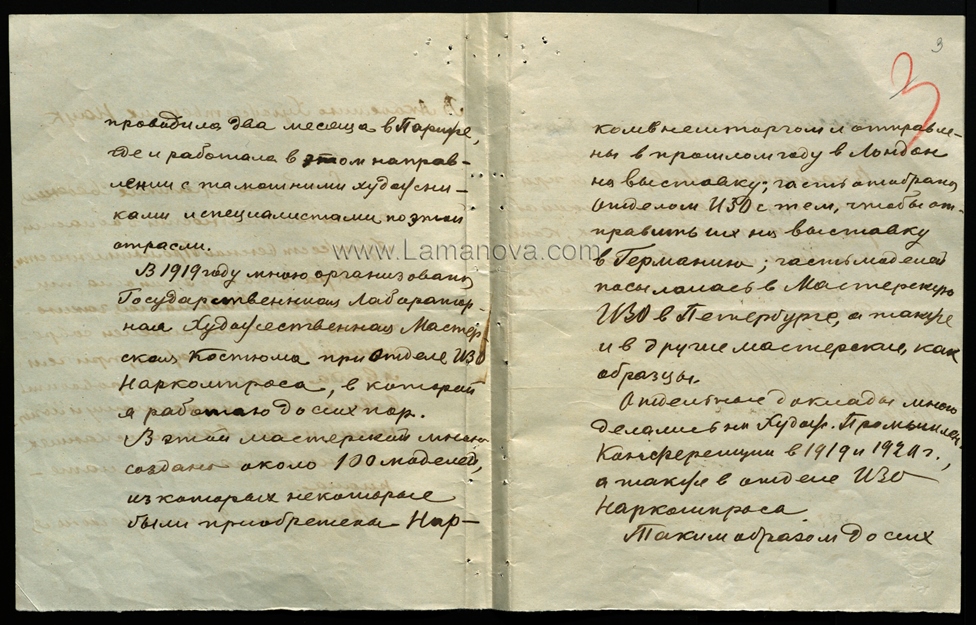 проводила два месяца в Париже,
где и работала в этом направ-
лении с тамошними художни-
ками и специалистами по этой
отрасли.
В 1919 году мною организована
Государственная Лаборатор-
ная Художественная Мастер-
ская Костюма при Отделе ИЗО
Наркомпроса, в которой
я работаю до сих пор.
В этой мастерской мною
создано около 100 моделей,
из которых некоторые
были приобретена Нар-
3
3
комвнешторгом и отправле-
ны в прошлом году в Лондон
на выставку; часть отобрана
Отделом ИЗО с тем, чтобы от-
править их на выставку
в Германию; часть моделей
посылалась в Мастерскую
ИЗО в Петербурге, а также
и в другие мастерские, как
образцы.
Отдельные доклады мною
делались на Худож. Промышлен.
Конференции в 1919 и 1920 г.,
а также в отделе ИЗО
Наркомпроса
Таким образом до сих
www.Lamanova.com